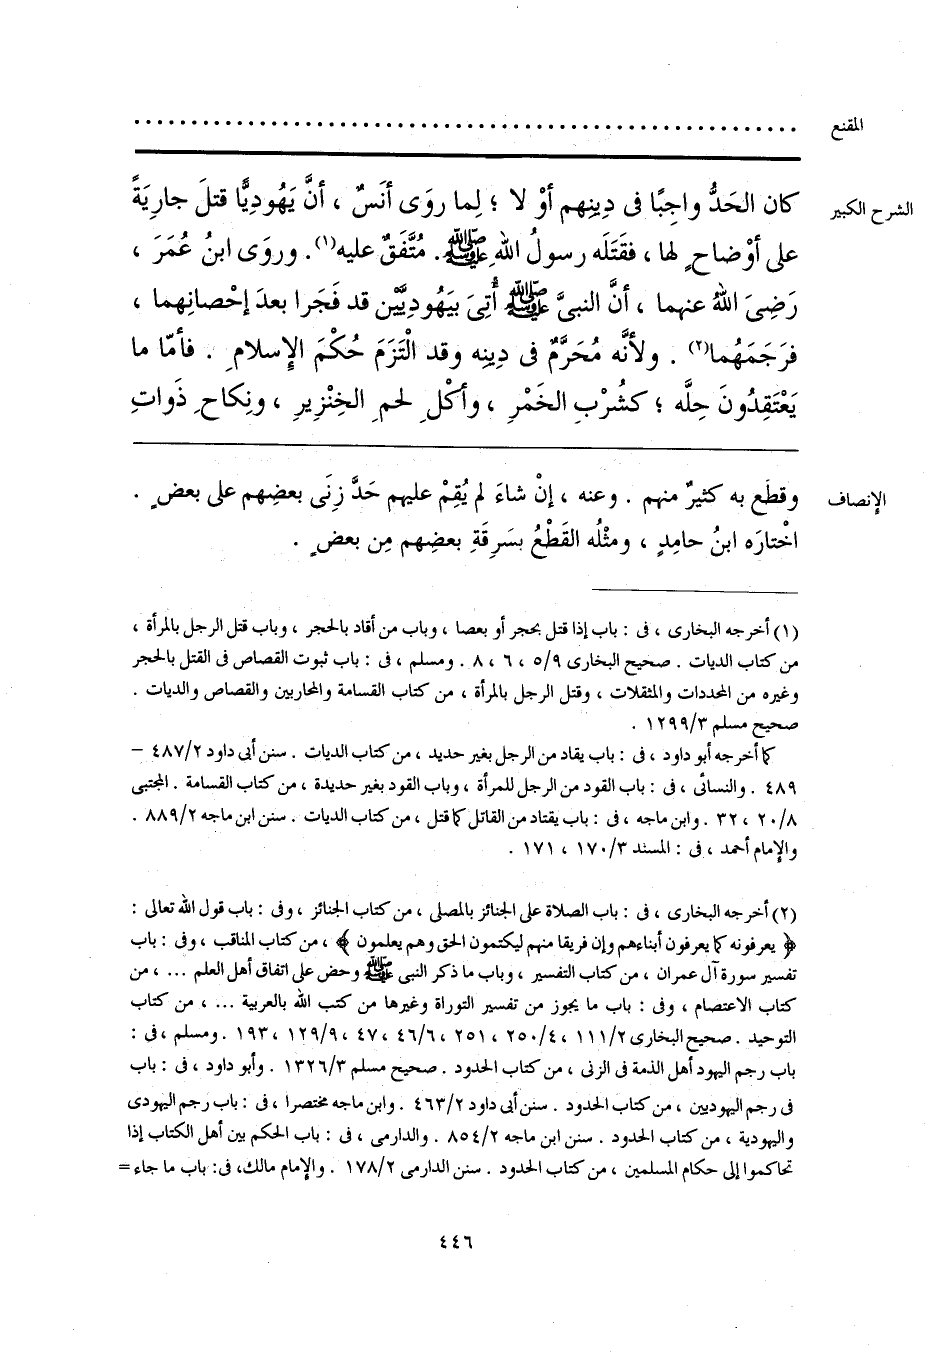 المقنع ............................................................
الشرح الكبير كان الحَدُّ واجِبًا فى دِينِهم أوْ لا ؛ لِما روَى أنَسٌ ، أنَّ يَهُودِيًّا قتلَ جارِيَةً
على أوْضاحٍ لها ، فقَتَلَه رسولُ اللهِ ﷺ. مُتَّفَقٌ عليه(١). وروَى ابنُ عُمَرَ ،
رَضِىَ اللهُ عنهما ، أنَّ النبىَّ ﷺ أُتِىَ بيَهُودِيَّيْن قد فَجَرا بعدَ إحْصانِهما ،
فرَجَمَهُما(٢) . ولأنَّه مُحَرَّمٌ فى دِينِه وقد الْتَزَمَ حُكْمَ الإِسلامِ . فأمّا ما
يَعْتَقِدُونَ حِلَّه ؛ كشُرْبِ الخَمْرِ ، وأكْلِ لحمِ الخِنْزِيرِ ، ونِكاحِ ذَواتِ
الإنصاف وقطَع به كثيرٌ منهم . وعنه ، إنْ شاءَ لم يُقِمْ عليهم حَدَّ زِنَى بعضِهم على بعضٍ .
اخْتارَه ابنُ حامِدٍ ، ومثْلُه القَطْعُ بسَرِقَةِ بعضِهم مِن بعضٍ .
(١) أخرجه البخارى ، فى : باب إذا قتل بحجر أو بعصا ، وباب من أقاد بالحجر ، وباب قتل الرجل بالمرأة ،
من كتاب الديات . صحيح البخارى ٥/٩ ، ٦ ، ٨ . ومسلم ، فى : باب ثبوت القصاص فى القتل بالحجر
وغيره من المحددات والمثقلات ، وقتل الرجل بالمرأة ، من كتاب القسامة والمحاربين والقصاص والديات .
صحيح مسلم ١٢٩٩/٣ .
كما أخرجه أبو داود ، فى : باب يقاد من الرجل بغير حديد ، من كتاب الديات . سنن أبى داود ٤٨٧/٢ –
٤٨٩ . والنسائى ، فى : باب القود من الرجل للمرأة ، وباب القود بغير حديدة ، من كتاب القسامة . المجتبى
٢٠/٨ ، ٣٢ . وابن ماجه ، فى : باب يقتاد من القاتل كما قتل ، من كتاب الديات . سنن ابن ماجه ٨٨٩/٢ .
والإمام أحمد ، فى : المسند ١٧٠/٣ ، ١٧١ .
(٢) أخرجه البخارى ، فى : باب الصلاة على الجنائز بالمصلى ، من كتاب الجنائز ، وفى : باب قول الله تعالى :
﴿ يعرفونه كما يعرفون أبناءهم وإن فريقا منهم ليكتمون الحق وهم يعلمون ﴾ ، من كتاب المناقب ، وفى : باب
تفسير سورة آل عمران ، من كتاب التفسير ، وباب ما ذكر النبى ﷺ وحض على اتفاق أهل العلم ... ، من
كتاب الاعتصام ، وفى : باب ما يجوز من تفسير التوراة وغيرها من كتب الله بالعربية ... ، من كتاب
التوحيد . صحيح البخارى ١١١/٢ ، ٢٥٠/٤ ، ٢٥١ ، ٤٦/٦ ، ٤٧ ، ١٢٩/٩ ، ١٩٣ . ومسلم ، فى :
باب رجم اليهود أهل الذمة فى الزنى ، من كتاب الحدود . صحيح مسلم ١٣٢٦/٣ . وأبو داود ، فى : باب
فى رجم اليهوديين ، من كتاب الحدود . سنن أبى داود ٤٦٣/٢ . وابن ماجه مختصرا ، فى : باب رجم اليهودى
واليهودية ، من كتاب الحدود . سنن ابن ماجه ٨٥٤/٢ . والدارمى ، فى : باب الحكم بين أهل الكتاب إذا
تحاكموا إلى حكام المسلمين ، من كتاب الحدود . سنن الدارمى ١٧٨/٢ . والإمام مالك، فى: باب ما جاء =
٤٤٦